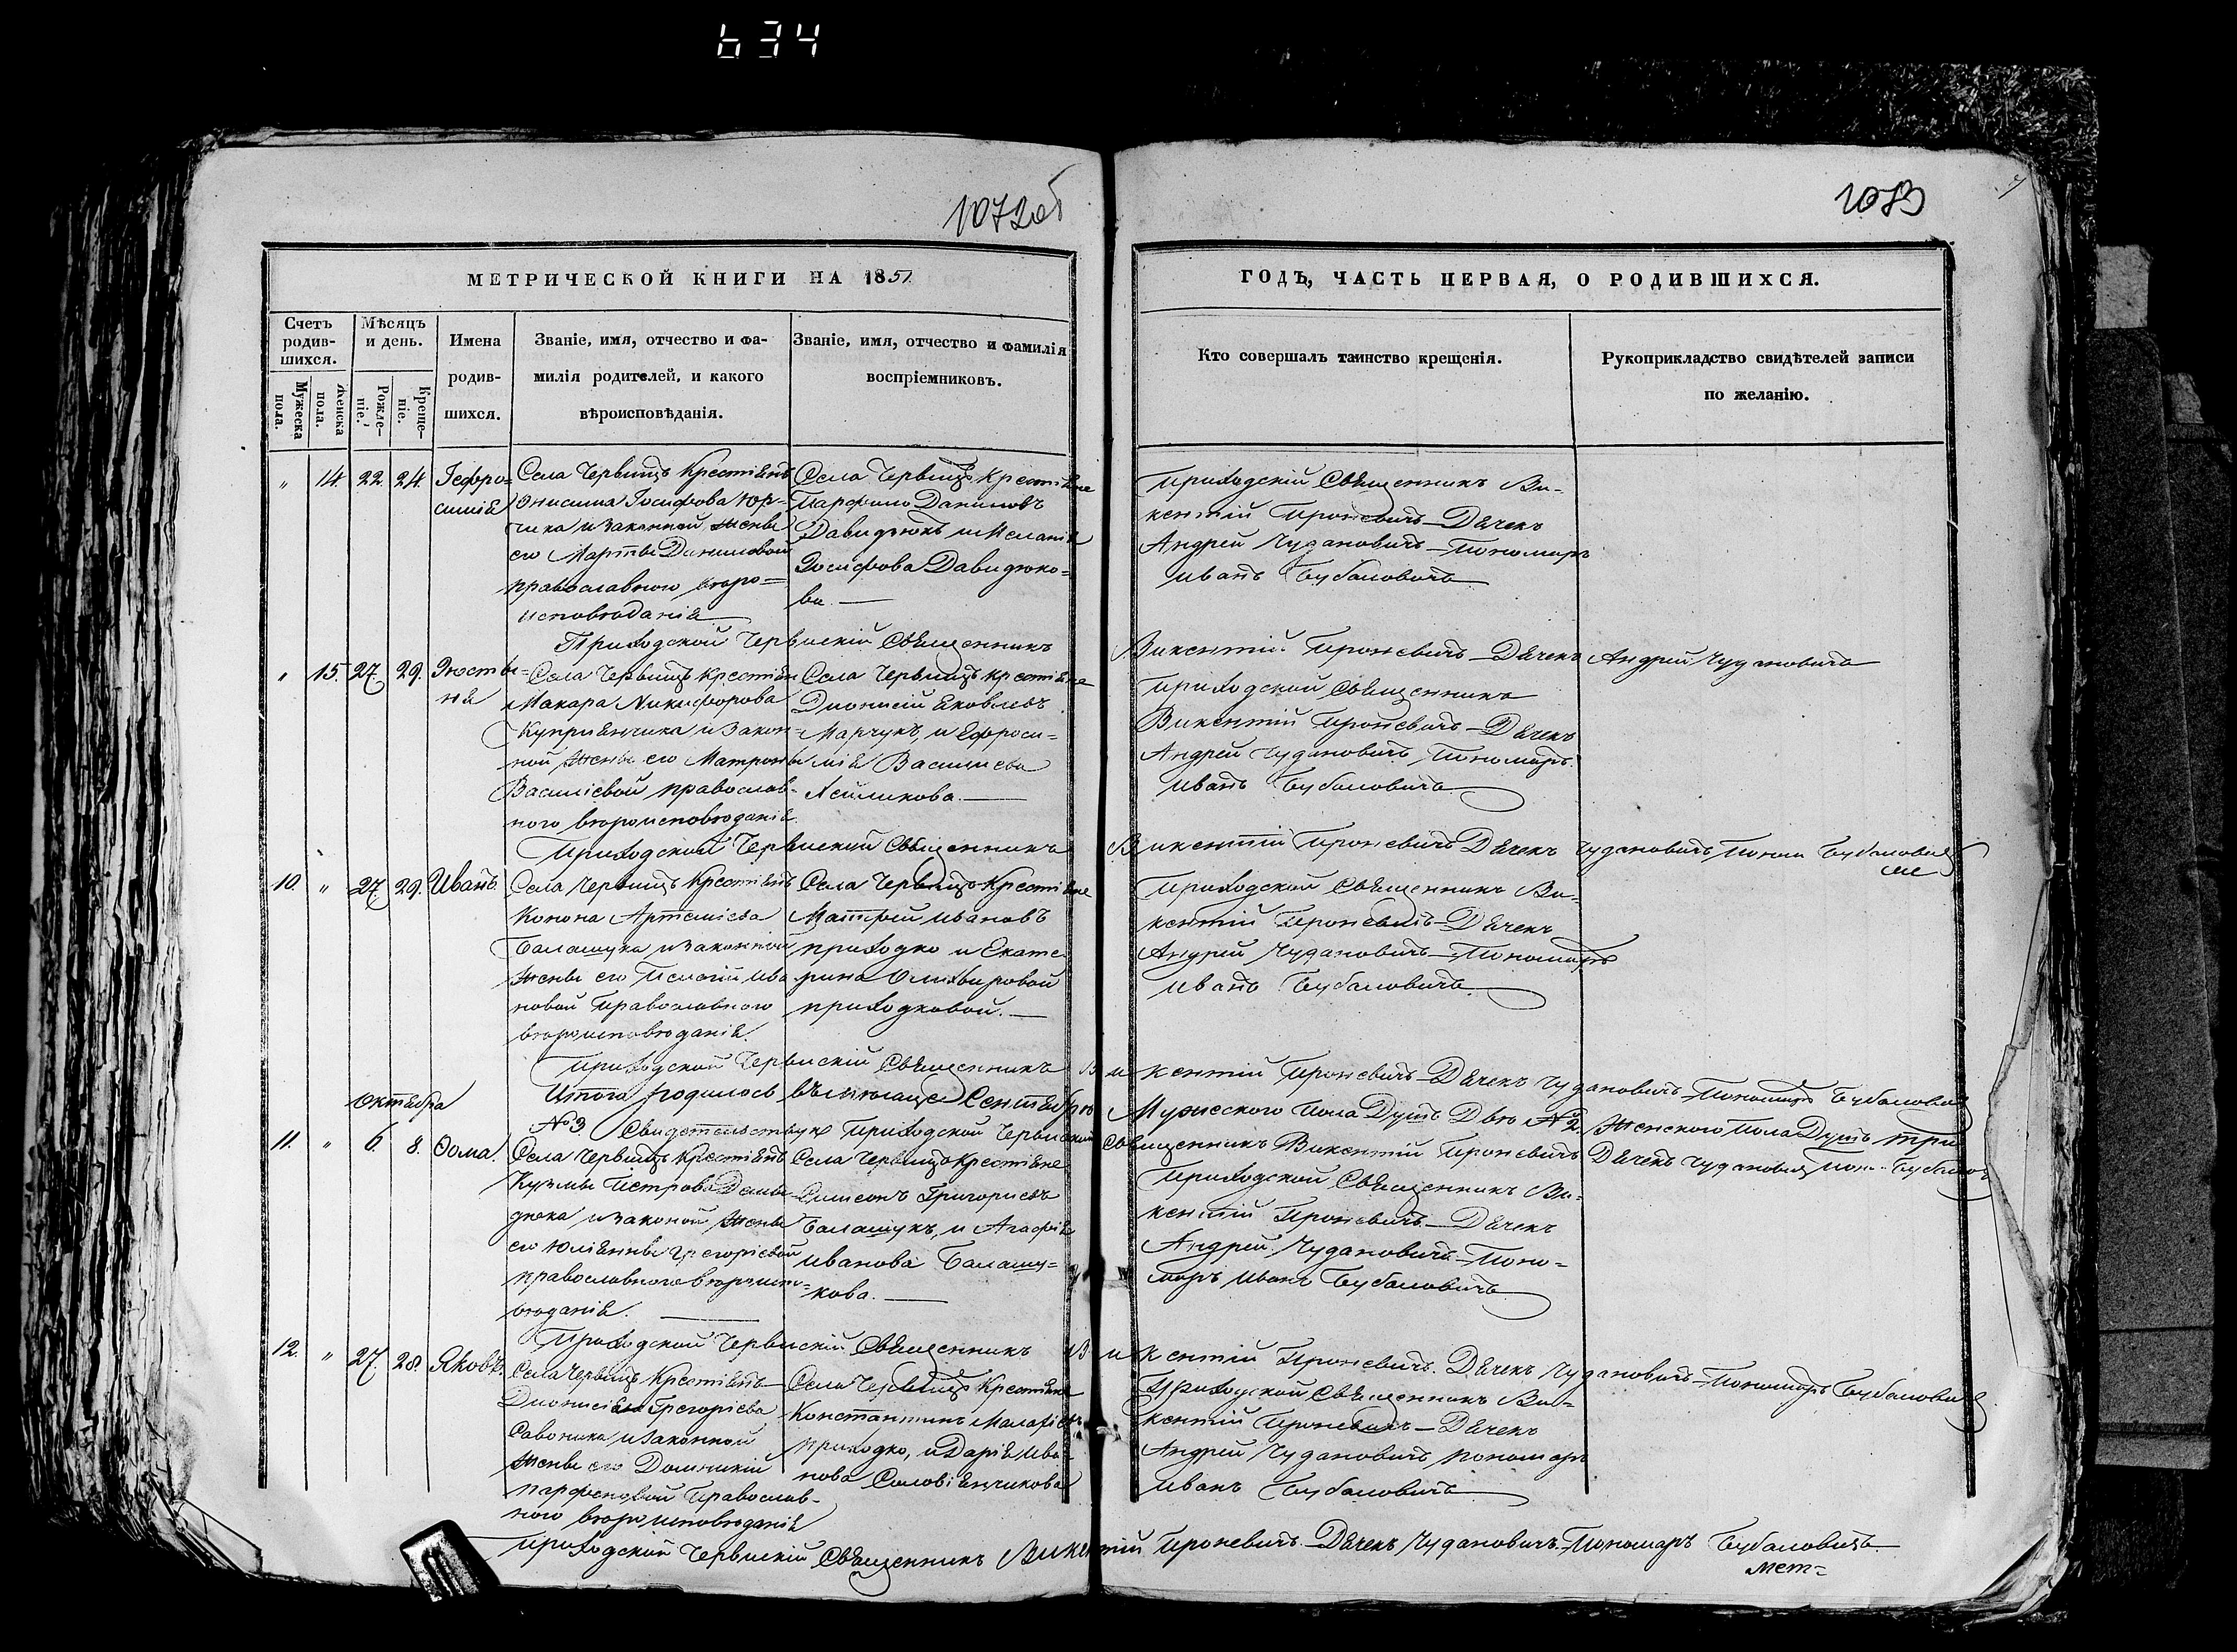 634
1072об
1073
МЕТРИЧЕСКОЙ КНИГИ НА 1851
ГОДЪ, ЧАСТЬ ПЕРВАЯ, О РОДИВШИХСЯ.
Счетъ родив-шихся.
Мужеска пола.
Женска пола.
Мѣсяцъ и день.
Рожде-ніе.
Креще-ніе.
Имена
родив-
шихся.
Званіе, имя, отчество и фа-
милія родителей, и какого
вѣроисповѣданія.
Званіе, имя, отчество и фамилія
воспріемниковъ.
Кто совершалъ таинство крещенія.
Рукоприкладство свидѣтелей записи
по желанію.
" 14. 22. 24.
Села Червищъ Крестянъ
Онисима Іосифова Юр-
чика и законной жены
его Марты Даниловой
православного вѣро=
исповѣданія
Села Червищъ Крестяне
Давидюкъ и Меланія
Іосифова Давидюко=
ва.
Приходскій Священникъ Ви-
кентій Проневичъ Дячекъ
Андрей Чудановичъ Пономаръ
Иванъ Бубаловичъ
Приходской Червискій Священникъ Викентій Проневичъ Дячекъ Андрей Чудановичъ
" 15. 27. 29. Іюсты=
нія
Села Червищъ Крестян
Макара Никифорова
Куприянчика и закон-
ной жены его Матроны
Василіевой православ-
ного вѣроисповѣданія.
Села Червищъ Крестяне
Дионисій Яковлевъ
Марчукъ, и Ефроси-
нія Василиева
Приходской Священникъ
Викентій Проневичъ Дячекъ
Андрей Чудановичъ Пономаръ.
Иванъ Бубаловичъ
Приходской Червиский Священникъ Викентій Проневичъ Дячекъ Чудановичъ Поном Бубалович
10. " 27. 29. Иванъ.
Села Червищъ Крестянъ
Конона Артемиева
Балашука и законной
жены его Пелагіи Ива
новой православного
вѣроисповѣданія.
Села Червищъ Крестяне
Матфей Ивановъ
приходко и Екате
рина
приходковой.
Приходской Священникъ Ви-
кентій Проневичъ Дячекъ
Андрей Чудановичъ Пономаръ
Иванъ Бубаловичъ
Приходской Червискій Священникъ Викентій Проневичъ Дячекъ Чудановичъ Пономаръ Бубалович
Итого родилось въ месяце Сентябрѣ Мужеского Пола Душъ Двѣ №2. Женского Пола Душъ три
№3. Приходской Червиский Священникъ Викентій Проневичъ Дячекъ Чудановичъ
Октября
11. " 6. 8. Ѳома.
Села Червищъ Крестянъ
Кузьмы Петрова
дюка и законой жены
его Юлиянны Грегоріевой
православного вѣроиспо=
вѣданія.
Села Червищъ Крестяне
Симеонъ Григориевъ
Балашукъ, и Агафія
Иванова Балашу=
кова.
Приходской Священникъ Ви-
кентій Проневичъ Дячекъ
Андрей Чудановичъ Поно=
маръ Иванъ Бубаловичъ
Приходской Червискій Священникъ Викентій Проневичъ. Дячекъ Чудановичъ Пономаръ Бубалович
12. " 27. 28. Яковъ.
Села Червищъ Крестянъ
Дионисія Грегоріева
Савоника и законной
жены его Домникіи
парфеновой Православ-
ного вѣроисповѣданія
Села Червищъ Крестяне
Константинъ
приходко, и Дарія Ива
нова
Приходской Священникъ Ви-
кентій Проневичъ Дячекъ
Андрей Чудановичъ, пономаръ
Иванъ Бубаловичъ
Приходской Червискій Священникъ Викентій Проневичъ. Дячекъ Чудановичъ. Пономаръ Бубаловичъ
мет=